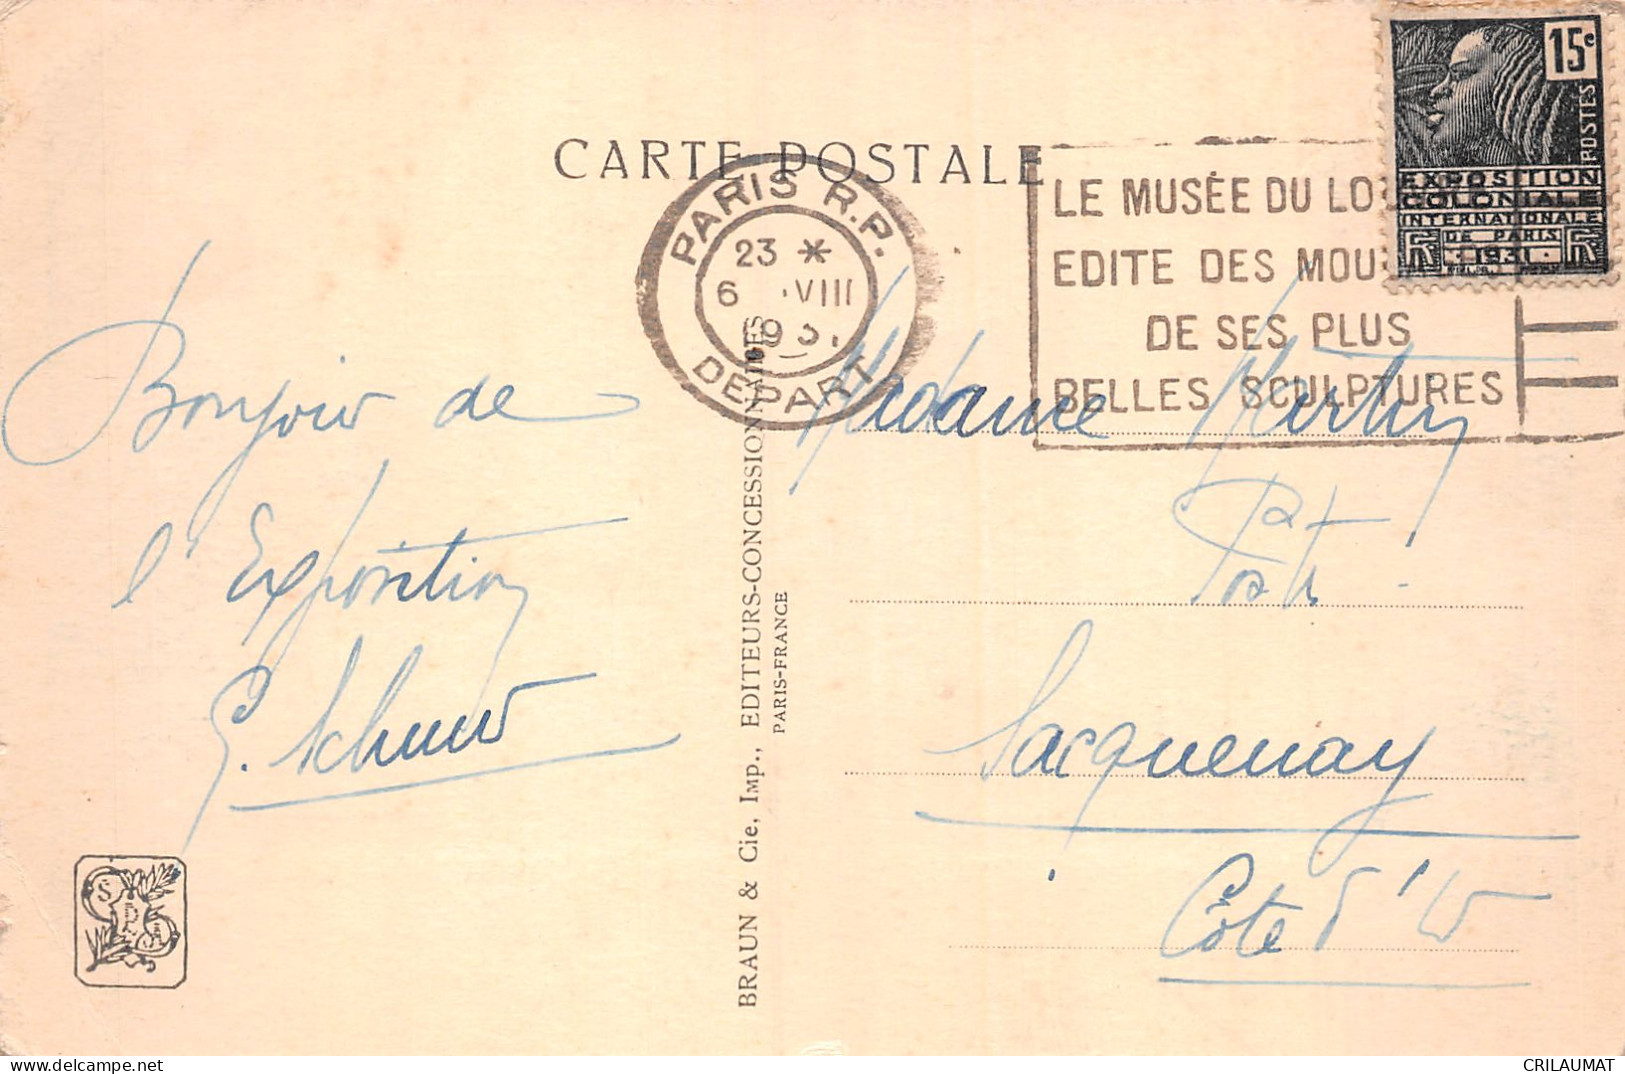 CARTE POSTALE
PARIS R.P.
23 *
6 VIII
193
DEPART
LE MUSÉE DU LO
EDITE DES MOU
DE SES PLUS
BELLES SCULPTURES
15c
POSTES
EXPOSITION
COLONIALE
INTERNATIONALE
DE PARIS
1931
RF RF
Bonjour de
l'Exposition
Madame Martin
Sacquenay
Côte d'Or
BRAUN & Cie, Imp., EDITEURS-CONCESSIONNAIRES
PARIS-FRANCE
SPA
CRILAUMAT